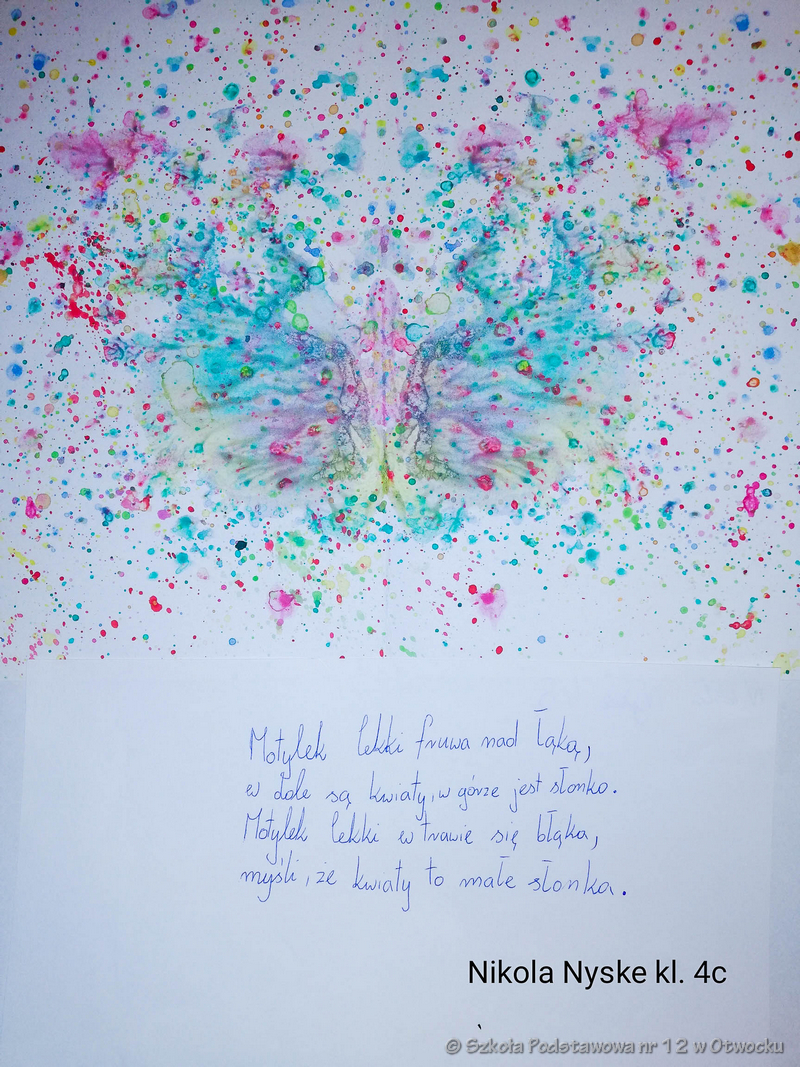 Motylek lekki fruwa nad łąką,
w dole są kwiaty, w górze jest słonko.
Motylek lekki w trawie się błąka,
myśli, że kwiaty to małe słonka.
Nikola Nyske kl. 4c
© Szkoła Podstawowa nr 12 w Otwocku